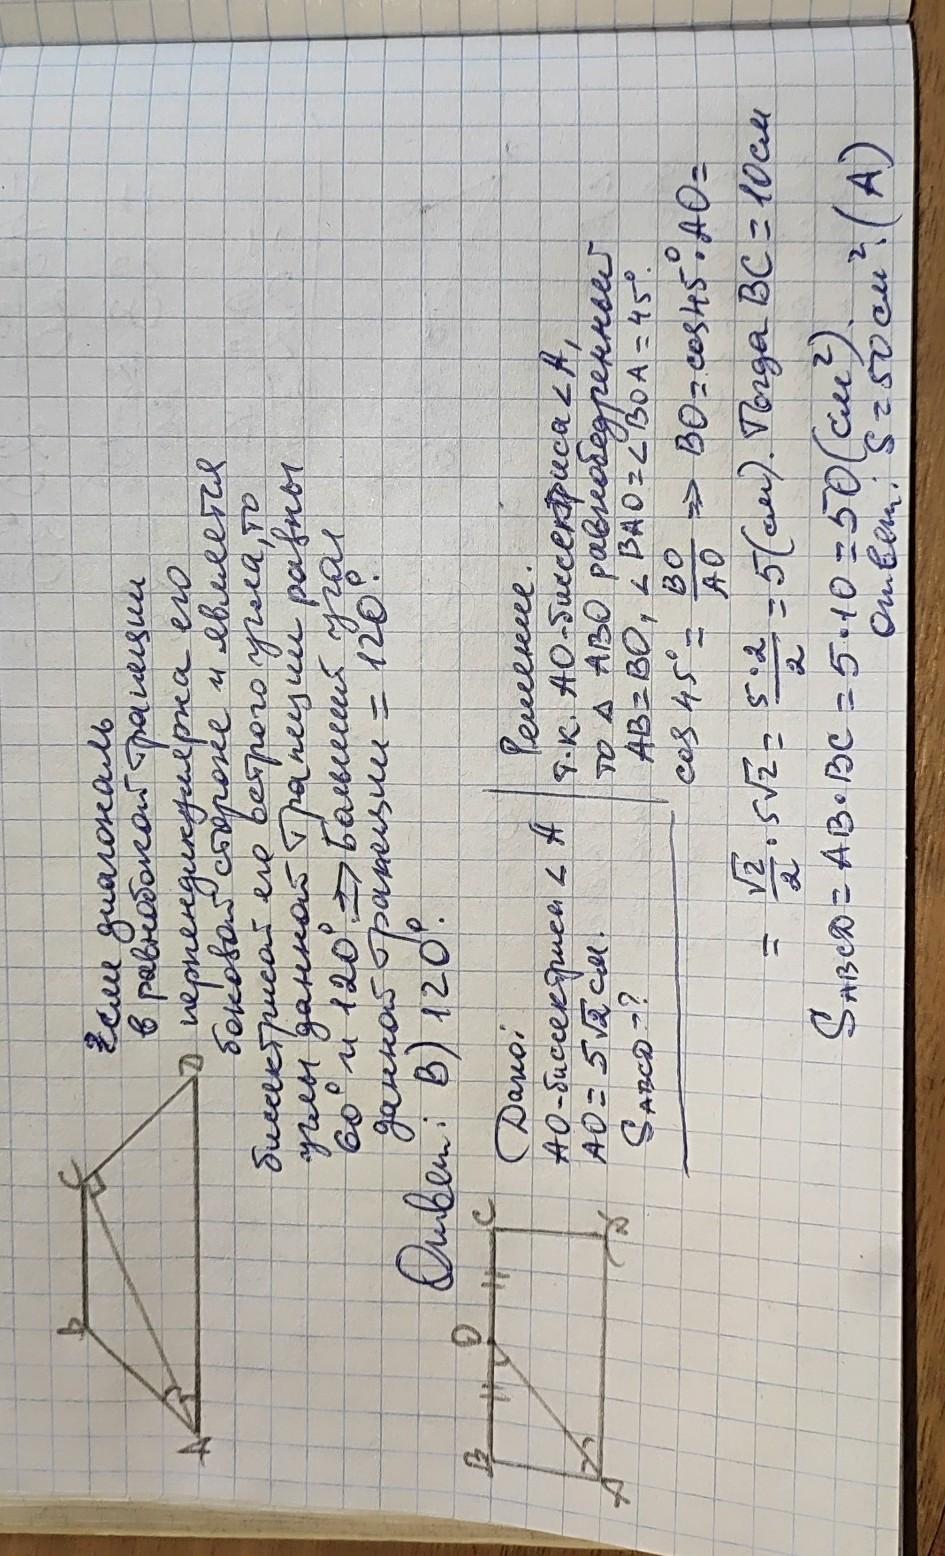 B
C
A
D
Если диагональ
в равнобокой трапеции
перпендикулярна его
боковой стороне и является
биссектрисой его острого угла, то
углы данной трапеции равны
60° и 120° ⇒ Больший угол
данной трапеции = 120°.
Ответ: В) 120°.
B
O
C
A
D
Дано:
AO-биссектриса < A
AO = 5√2 см.
SABCD-?
Решение.
т.к. AO-биссектриса < A,
то △ ABO равнобедренный
AB = BO, < BAO = < BOA = 45°.
cos 45° = BO/AO ⇒ BO = cos45° · AO =
= √2/2 · 5√2 = 5·2/2 = 5(см). Тогда BC = 10см
SABCD = AB · BC = 5 · 10 = 50 (см²).
Ответ: S = 50 см². (А)